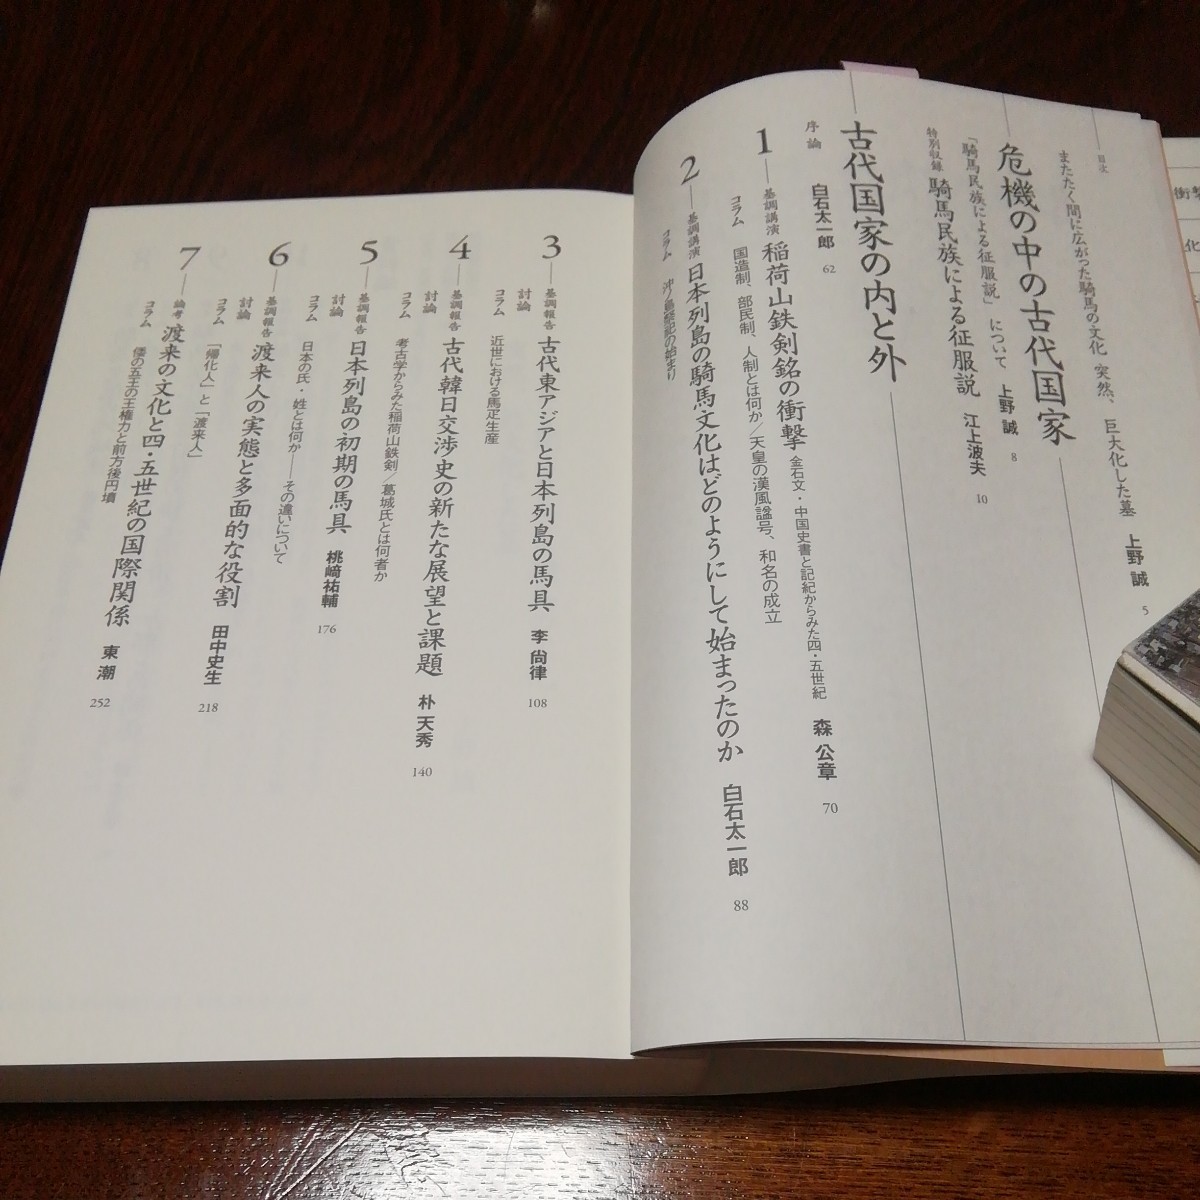 目次
またたく間に広がった騎馬の文化 突然、巨大化した墓 上野 誠 5
危機の中の古代国家
「騎馬民族による征服説」について 上野 誠 8
特別収録 騎馬民族による征服説 江上波夫 10
古代国家の内と外
序論 白石太一郎 62
1 基調講演 稲荷山鉄剣銘の衝撃 金石文・中国史書と記紀からみた四・五世紀 森 公章 70
コラム 国造制、部民制、人制とは何か/天皇の漢風諡号、和名の成立
2 基調講演 日本列島の騎馬文化はどのようにして始まったのか 白石太一郎 88
コラム 沖ノ島祭祀の始まり
3 基調報告 古代東アジアと日本列島の馬具 李 尚律 108
討論
コラム 近世における馬疋生産
4 基調報告 古代韓日交渉史の新たな展望と課題 朴 天秀 140
討論
コラム 考古学からみた稲荷山鉄剣/葛城氏とは何者か
5 基調報告 日本列島の初期の馬具 桃﨑祐輔 176
討論
コラム 日本の氏・姓とは何か――その違いについて
6 基調報告 渡来人の実態と多面的な役割 田中史生 218
討論
コラム 「帰化人」と「渡来人」
7 論考 渡来の文化と四・五世紀の国際関係 東 潮 252
コラム 倭の五王の王権力と前方後円墳
衝撃
化